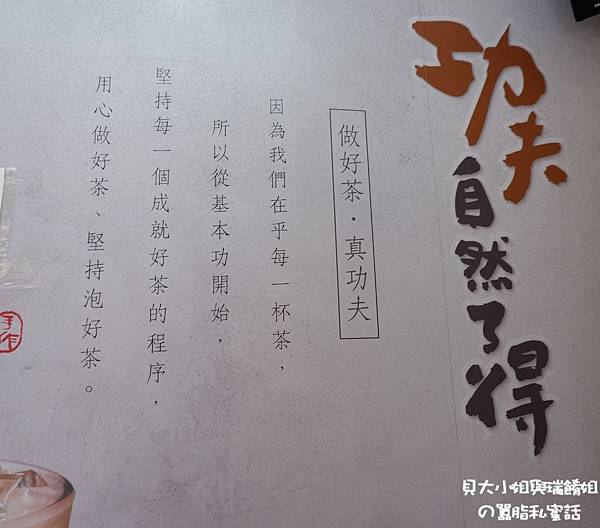 功夫自然了得
做好茶・真功夫
因為我們在乎每一杯茶，
所以從基本功開始，
堅持每一個成就好茶的程序，
用心做好茶、堅持泡好茶。
手作
貝大小姐與瑞餚姐
の囂脂私蜜話